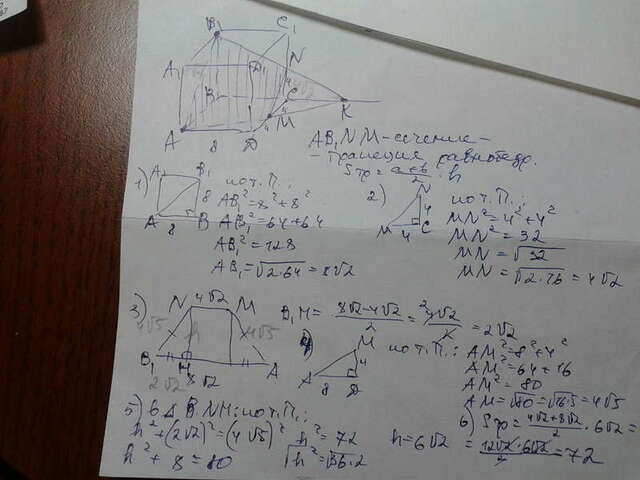 B₁ C₁
N
A₁ D₁ 4
B C
4 M K
A 8 D
AB₁NM - сечение -
- трапеция равнобедр.
Sтр = a+b/2 · h
1) A₁ B₁ по т. П.:
8 AB₁² = 8² + 8²
A 8 B AB₁² = 64 + 64
AB₁² = 128
AB₁ = √2·64 = 8√2
2) N по т. П.:
4 MN² = 4² + 4²
M 4 C MN² = 32
MN = √32
MN = √2·16 = 4√2
3) N 4√2 M
4√5 h 4√5
B₁ H A
2√2 8√2
B₁H = 8√2 - 4√2/2 = 4√2/2 = 2√2
4) M по т. П.: AM² = 8² + 4²
4 AM² = 64 + 16
A 8 D AM² = 80
AM = √80 = √16·5 = 4√5
5) в Δ B₁NH: по т. П.:
h² + (2√2)² = (4√5)² h² = 72 h = 6√2
h² + 8 = 80 √h² = √36·2
6) Sтр = 4√2 + 8√2/2 · 6√2 =
= 12√2 · 6√2/2 = 72